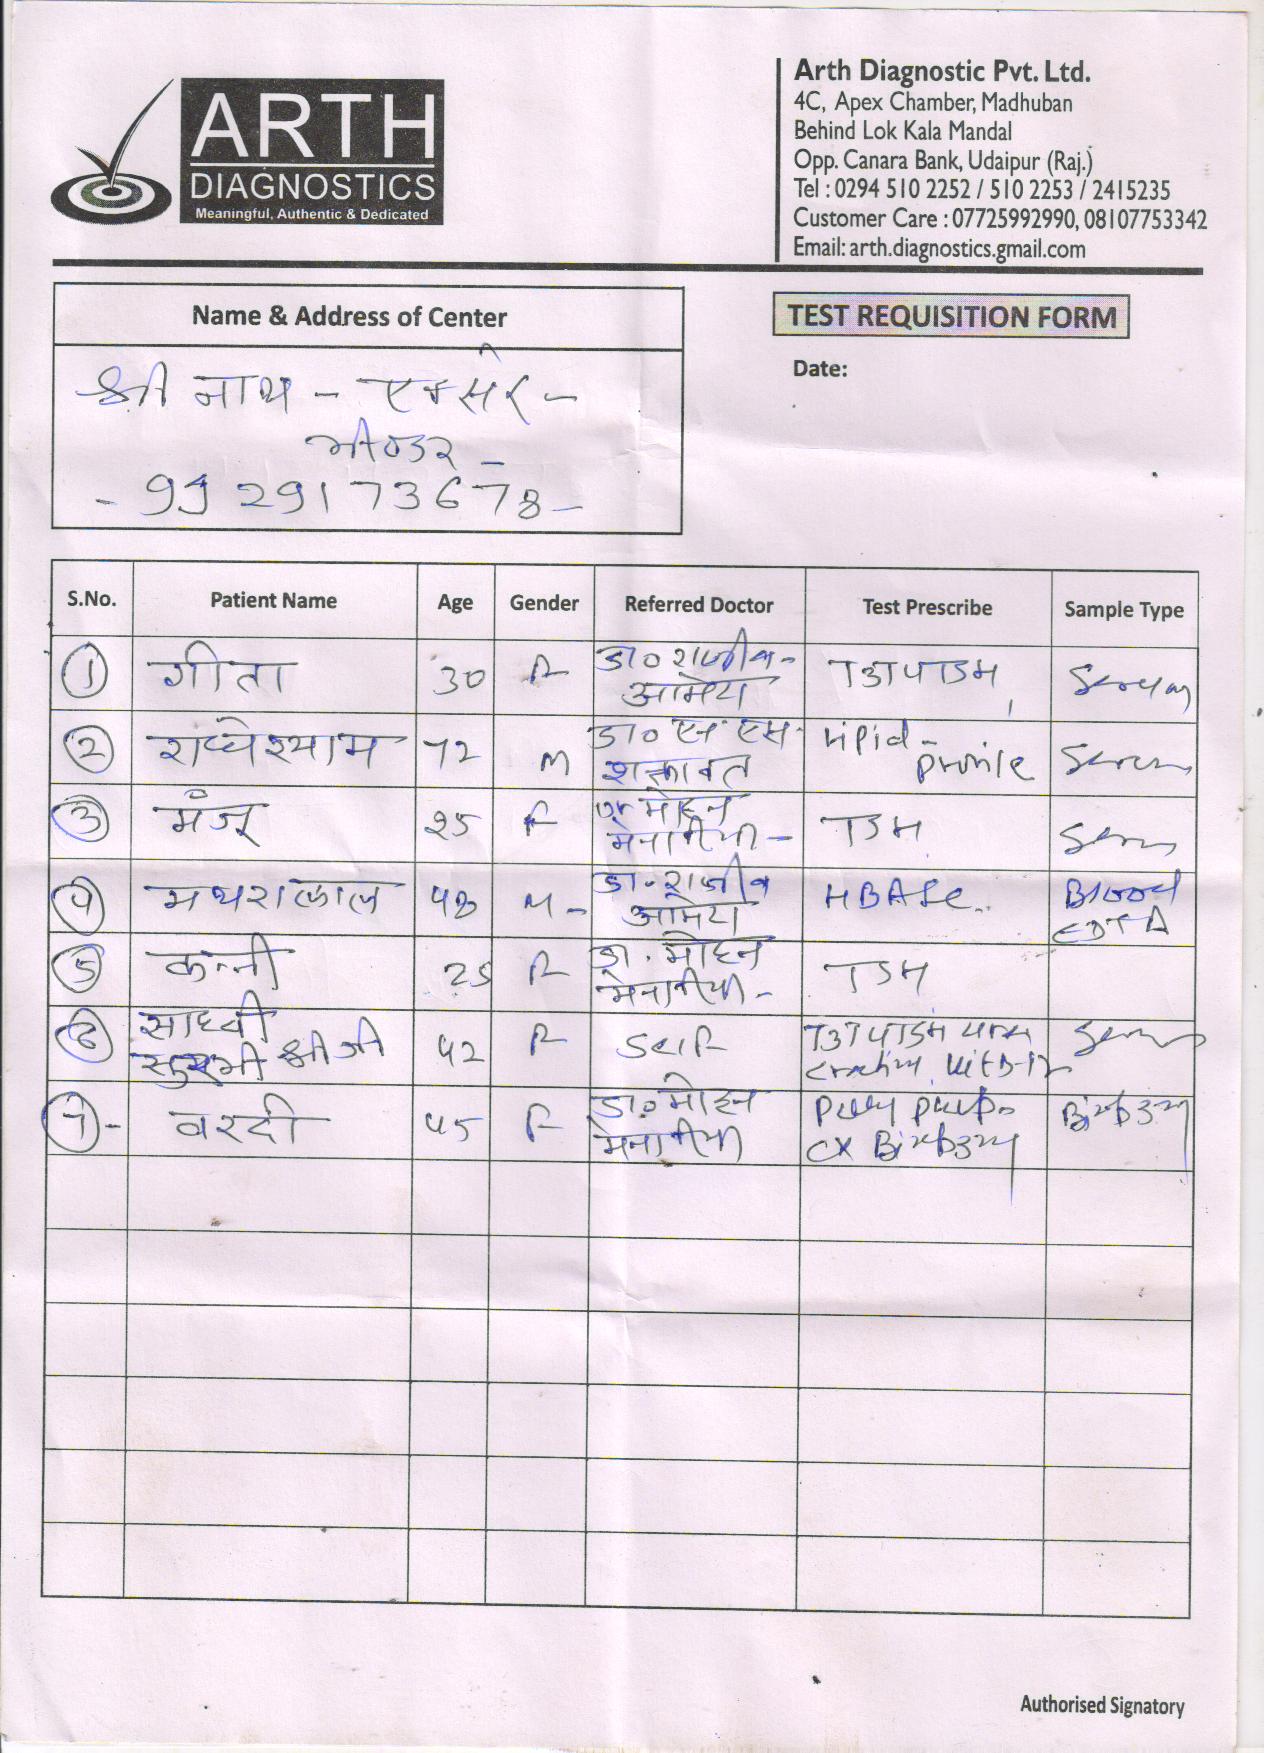 ARTH
DIAGNOSTICS
Meaningful, Authentic & Dedicated
Arth Diagnostic Pvt. Ltd.
4C, Apex Chamber, Madhuban
Behind Lok Kala Mandal
Opp. Canara Bank, Udaipur (Raj.)
Tel : 0294 510 2252 / 510 2253 / 2415235
Customer Care : 07725992990, 08107753342
Email: arth.diagnostics.gmail.com
Name & Address of Center
TEST REQUISITION FORM
Date:
श्री नाथ - एक्सरे -
भीण्डर -
S.No. Patient Name Age Gender Referred Doctor Test Prescribe Sample Type
1 गीता 30 F डा० राजीव - आमेटा T3T4TSH Serum
2 राधेश्याम 72 M डा० एन एस शक्तावत Lipid - profile Serum
3 मंजू 25 F मोहन मेनारीया - TSH Serum
4 मथरालाल 48 M - डा. राजीव आमेटा HBA1c Blood EDTA
5 कन्नी 25 F डा. मोहन मेनारीया - TSH
6 साध्वी श्री जी 42 F Self T3T4TSH Vit B-12 Serum
7 - वरदी 45 F डा० मोहन मेनारीया CX
Authorised Signatory